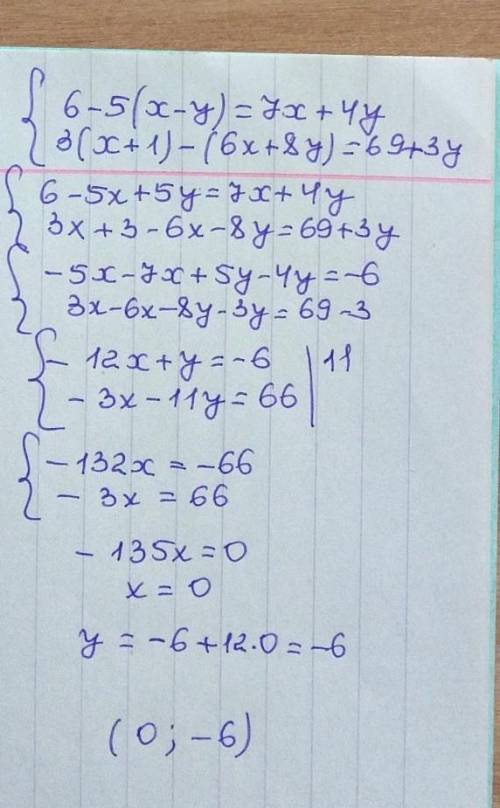 { 6-5(x-y)=7x+4y
3(x+1)-(6x+8y)=69+3y
{ 6-5x+5y=7x+4y
3x+3-6x-8y=69+3y
{ -5x-7x+5y-4y=-6
3x-6x-8y-3y=69-3
{ -12x+y=-6 | 11
-3x-11y=66
{ -132x=-66
-3x=66
-135x=0
x=0
y=-6+12·0=-6
(0;-6)